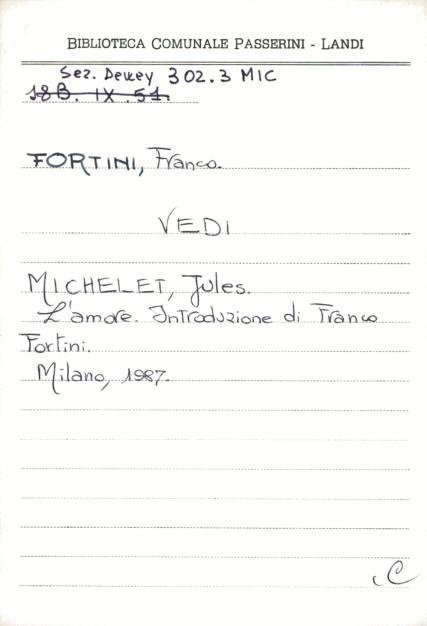 BIBLIOTECA COMUNALE PASSERINI - LANDI
Sez. Dewey 302.3 MIC
18B. IX. 51.
FORTINI, Franco.
VEDI
MICHELET, Jules.
L'amore. Introduzione di Franco
Fortini.
Milano, 1987.
C